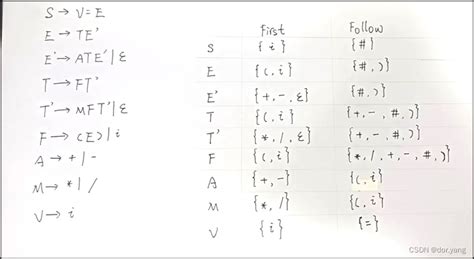 First Follow
S → V=E S {i} {#}
E → TE' E {(,i} {#,)}
E' → ATE'|ε E' {+,-,ε} {#,)}
T → FT' T {(,i} {+,-,#,)}
T' → MFT'|ε T' {*,/,ε} {+,-,#,)}
F → (E)|i F {(,i} {*,/,+,-,#,)}
A → +|- A {+,-} {(,i}
M → *|/ M {*,/} {(,i}
V → i V {i} {=}
CSDN @dor.yang